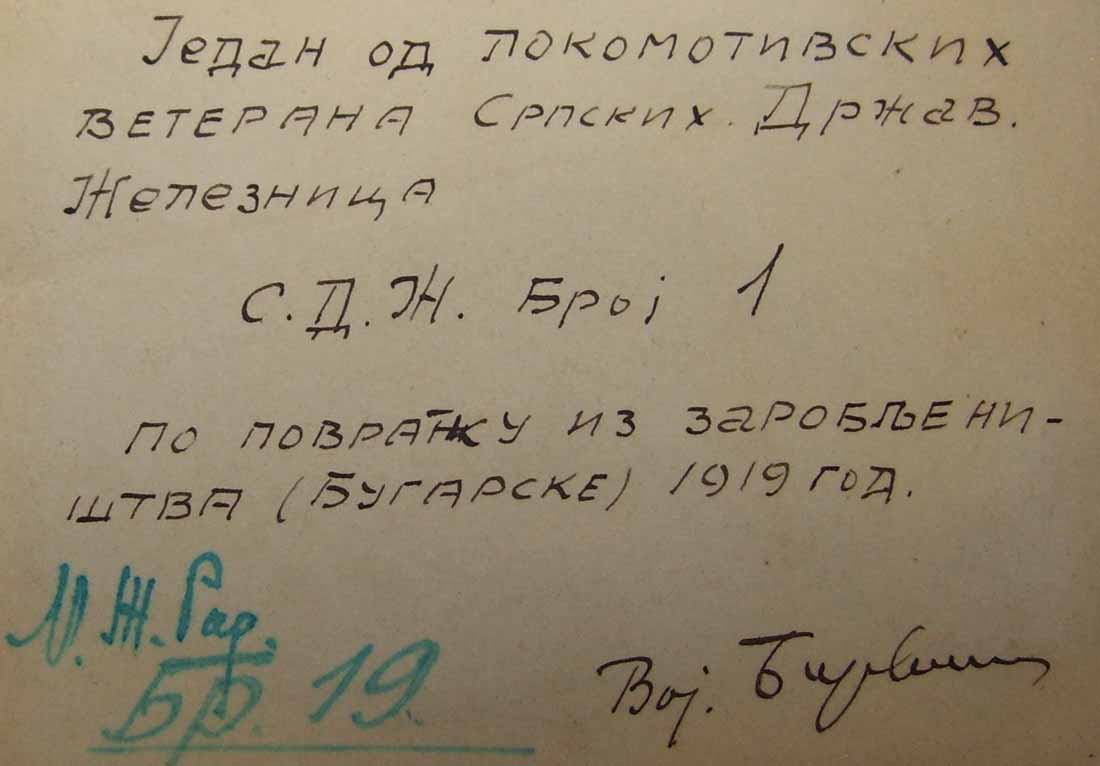 Један од локомотивских
ветерана Српских Држав.
Железница
С.Д.Ж. Број 1
По повратку из заробљени-
штва (Бугарске) 1919 год.
Ж. Рад.
Бр. 19.
Вој.